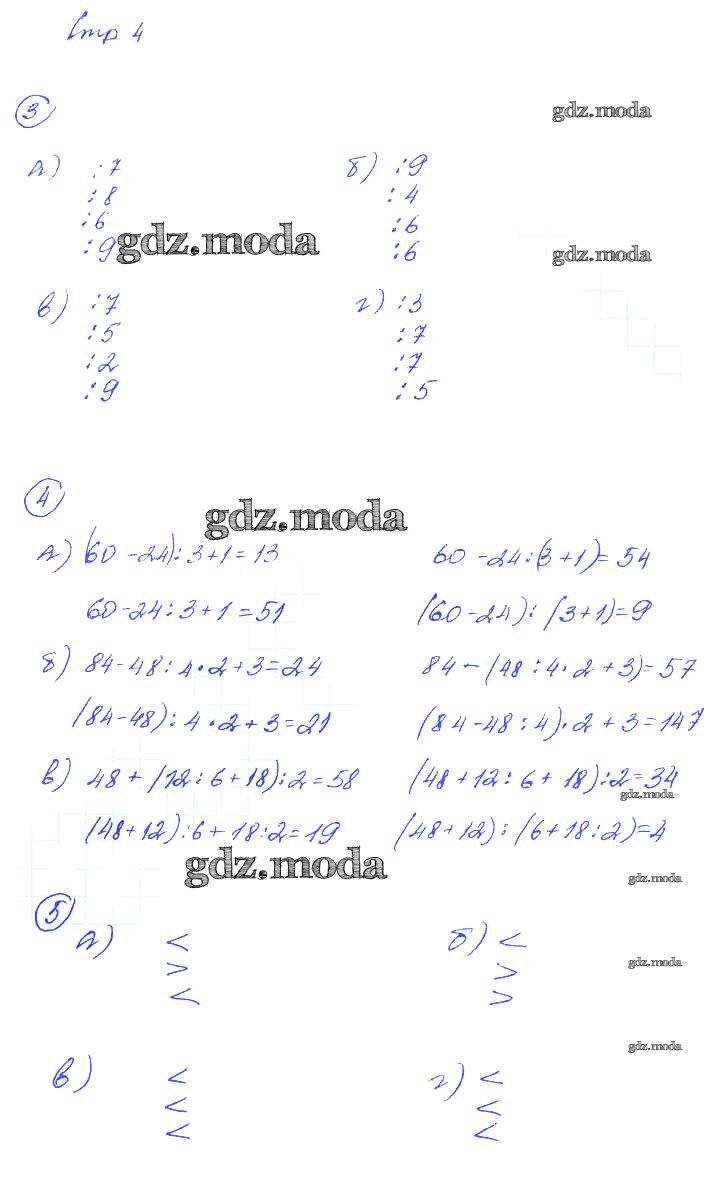 Стр 4
3
gdz.moda
а) :7 б) :9
:8 :4
:6 :6
:9 :6
gdz.moda
gdz.moda
в) :7 г) :3
:5 :7
:2 :7
:9 :5
4
gdz.moda
а) (60-24):3+1=13 60-24:(3+1)=54
60-24:3+1=51 (60-24):(3+1)=9
б) 84-48:4·2+3=24 84-(48:4·2+3)=57
(84-48):4·2+3=21 (84-48:4)·2+3=147
в) 48+(12:6+18):2=58 (48+12:6+18):2=34
gdz.moda
(48+12):6+18:2=19 (48+12):(6+18:2)=4
gdz.moda
gdz.moda
5
а) < б) <
> >
gdz.moda
< >
gdz.moda
в) < г) <
< <
< <